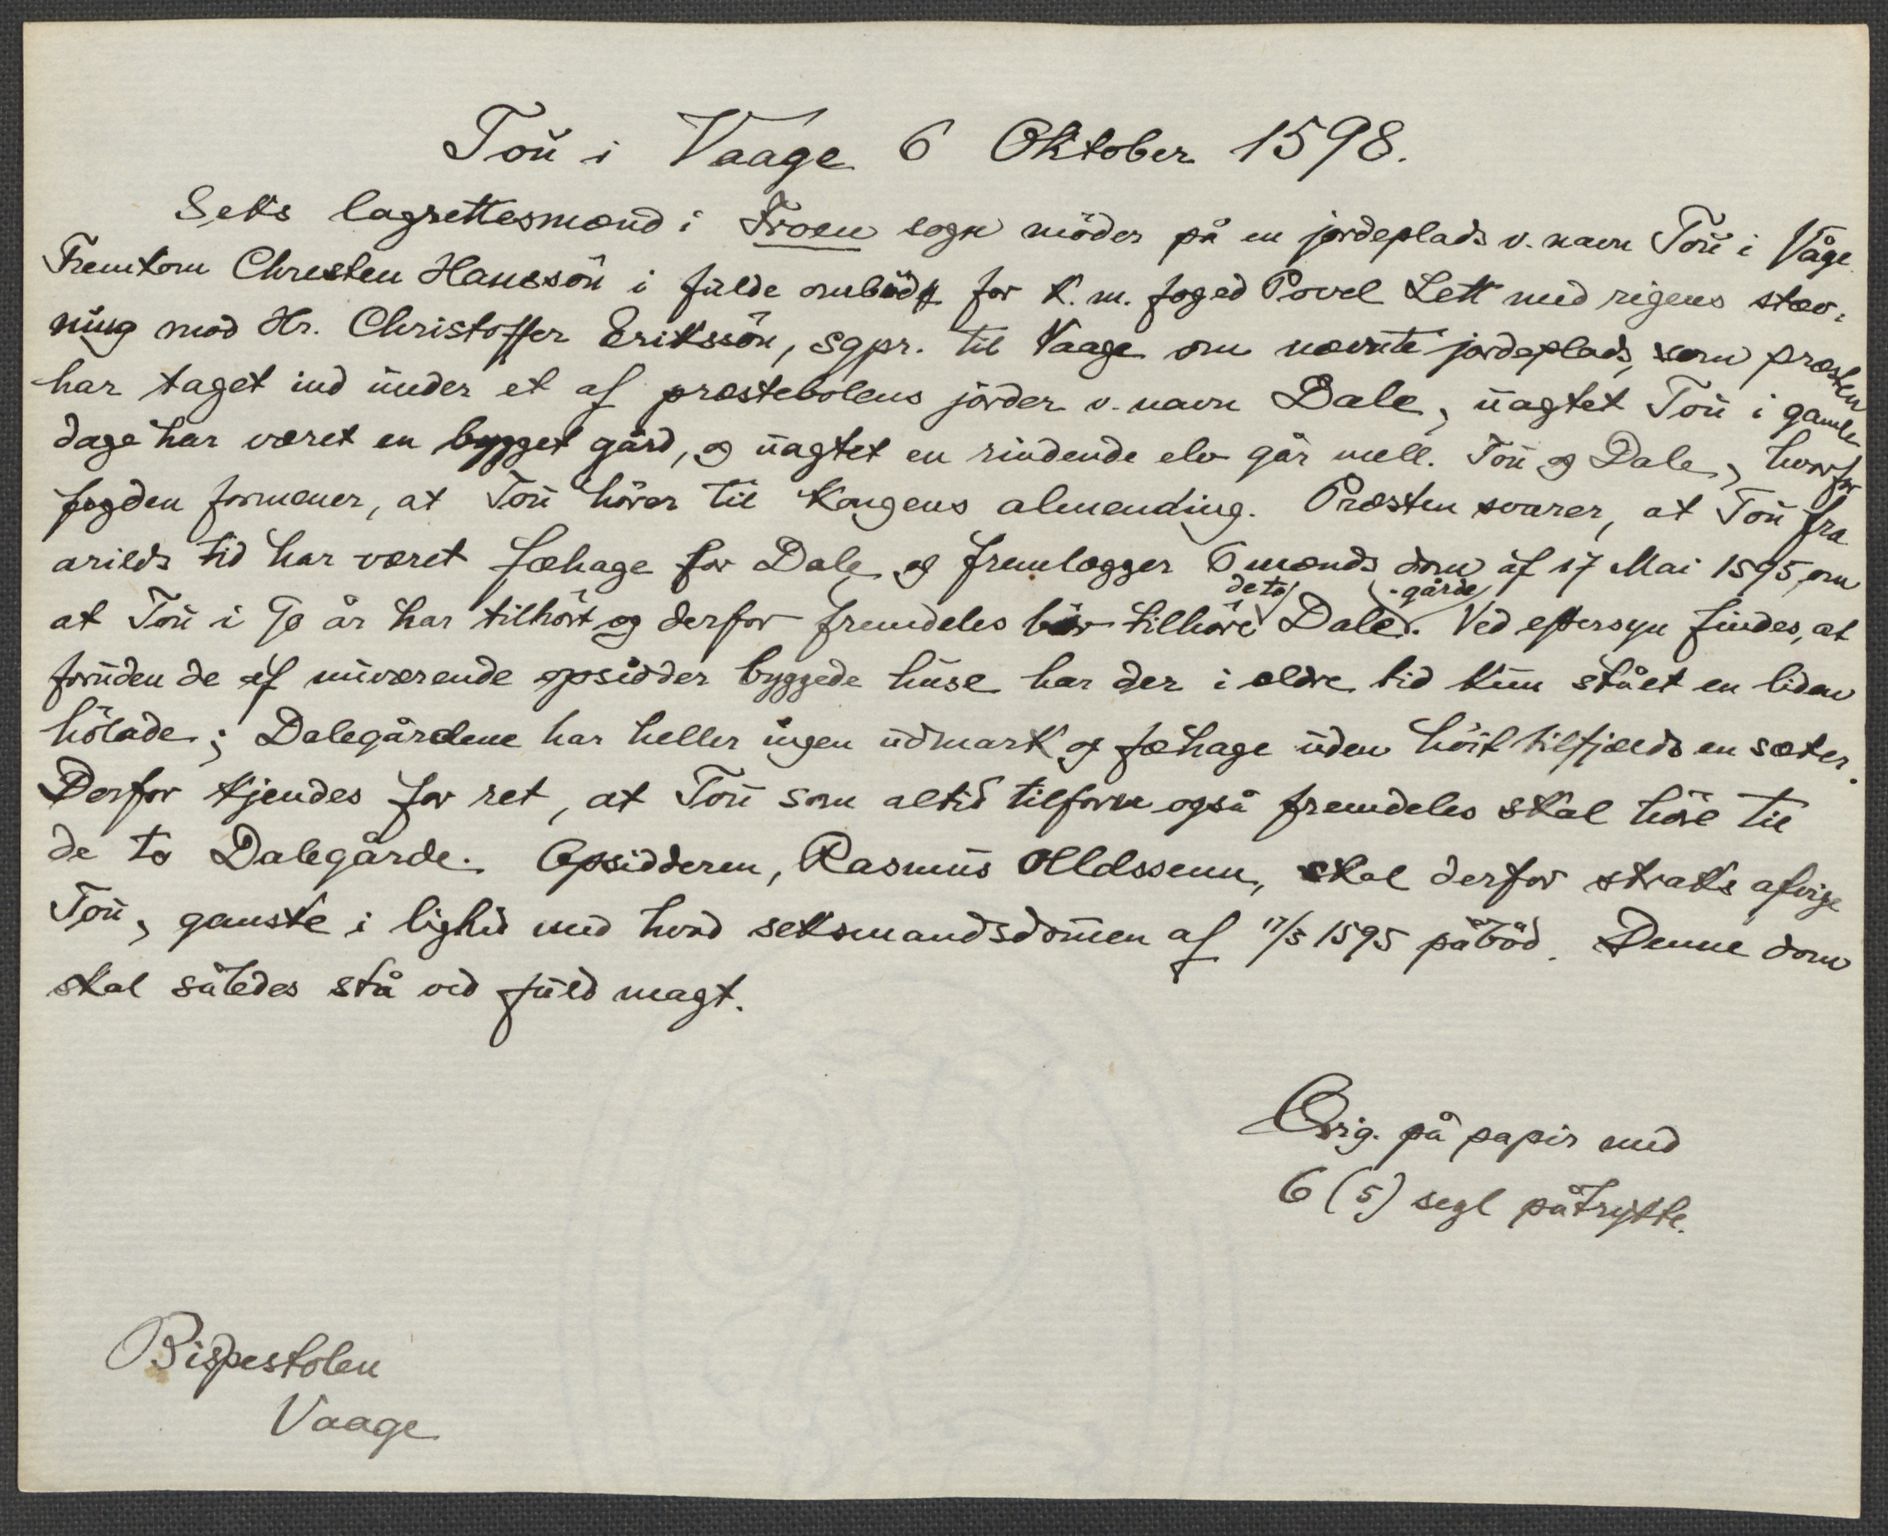 Toŭ i Vaage 6 Oktober 1598.
Seks lagrettesmænd i Froen sogn möder på en jordeplads v. navn Toŭ i Våge.
Fremkom Christen Hanssön i fŭlde ombŭd for K. m. foged Povel Lett med rigens stæv-
ning mod Hr. Christoffer Erikssön, sgpr. til Vaage om nævnte jordeplads, som præsten
har taget ind ŭnder et af præstebolens jorder v. navn Dale, ŭagtet Toŭ i gamle
dage har været en bygget gård, og ŭagtet en rindende elv går mell. Toŭ og Dale, hvorfor
fogden formener, at Toŭ hörer til Kongens almending. Præsten svarer, at Toŭ fra
arilds tid har været fæhage for Dale og fremlægger 6 mænds dom af 17 Mai 1595, om
at Toŭ i 70 år har tilhört og derfor fremdeles bör tilhöre de to Dale-gårde. Ved eftersyn findes, at
forŭden de af nŭværende opsidder byggede hŭse har der i ældre tid kŭn stået en liden
hölade; Dalegårdene har heller ingen ŭdmark og fæhage ŭden höit tilfjælds en sæter.
Derfor kjendes for ret, at Toŭ som altid tilforn også fremdeles skal höre til
de to Dalegårde. Opsidderen, Rasmŭs Olldssenn, skal derfor straks afvige
Toŭ, ganske i lighed med hvad seksmandsdom̄en af 17/5 1595 påböd. Denne dom
skal således stå ved fŭld magt.
Orig. på papir med
6 (5) segl påtrykte.
Bispestolen
Vaage